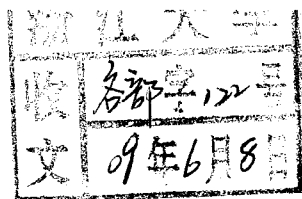 浙江大学
收文
各部字122号
09年6月8日